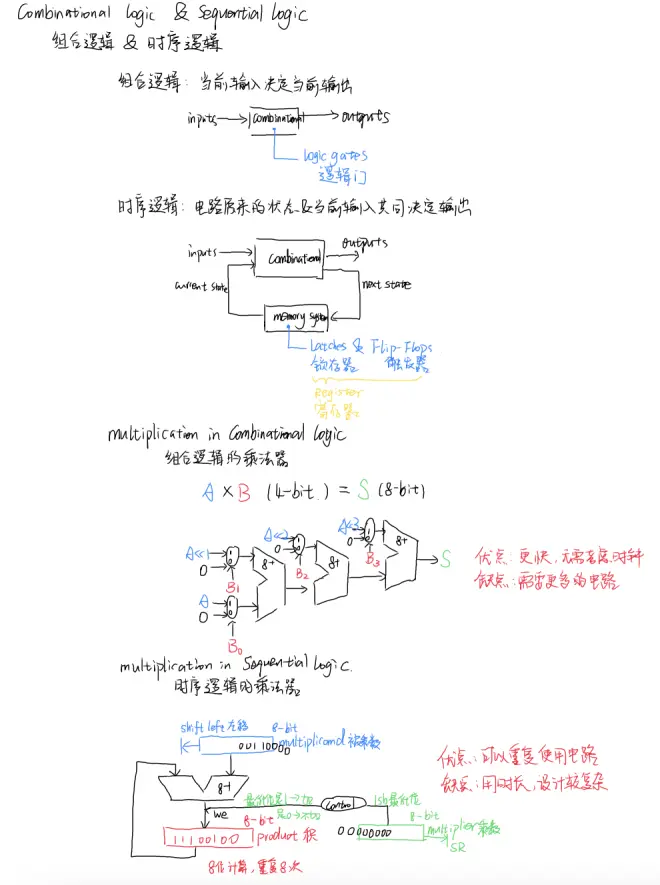 Combinational Logic & Sequential logic
组合逻辑 & 时序逻辑
组合逻辑: 当前输入决定当前输出
inputs Combinational outputs
logic gates
逻辑门
时序逻辑: 电路原来的状态及当前输入共同决定输出
inputs Combinational outputs
current state next state
memory system
Latches & Flip-Flops
锁存器 触发器
Register
寄存器
multiplication in Combinational Logic
组合逻辑的乘法器
A × B (4-bit) = S (8-bit)
A<<3
A<<2 1 0
0 8+
A<<1 1 0
0 8+ S
B3
B2
8+
B1
A 1 0
0
B0
优点: 更快, 无需考虑时钟
缺点: 需要更多的电路
multiplication in Sequential Logic.
时序逻辑的乘法器
shift left 左移 8-bit
00110000 multiplicand 被乘数
8+
最低位是1→加
是0→不加
control
lsb 最低位
we
8-bit
11100100 product 积
8-bit
00000000 multiplier 乘数
SR
8位计算, 重复8次
优点: 可以重复使用电路
缺点: 用时长, 设计较复杂